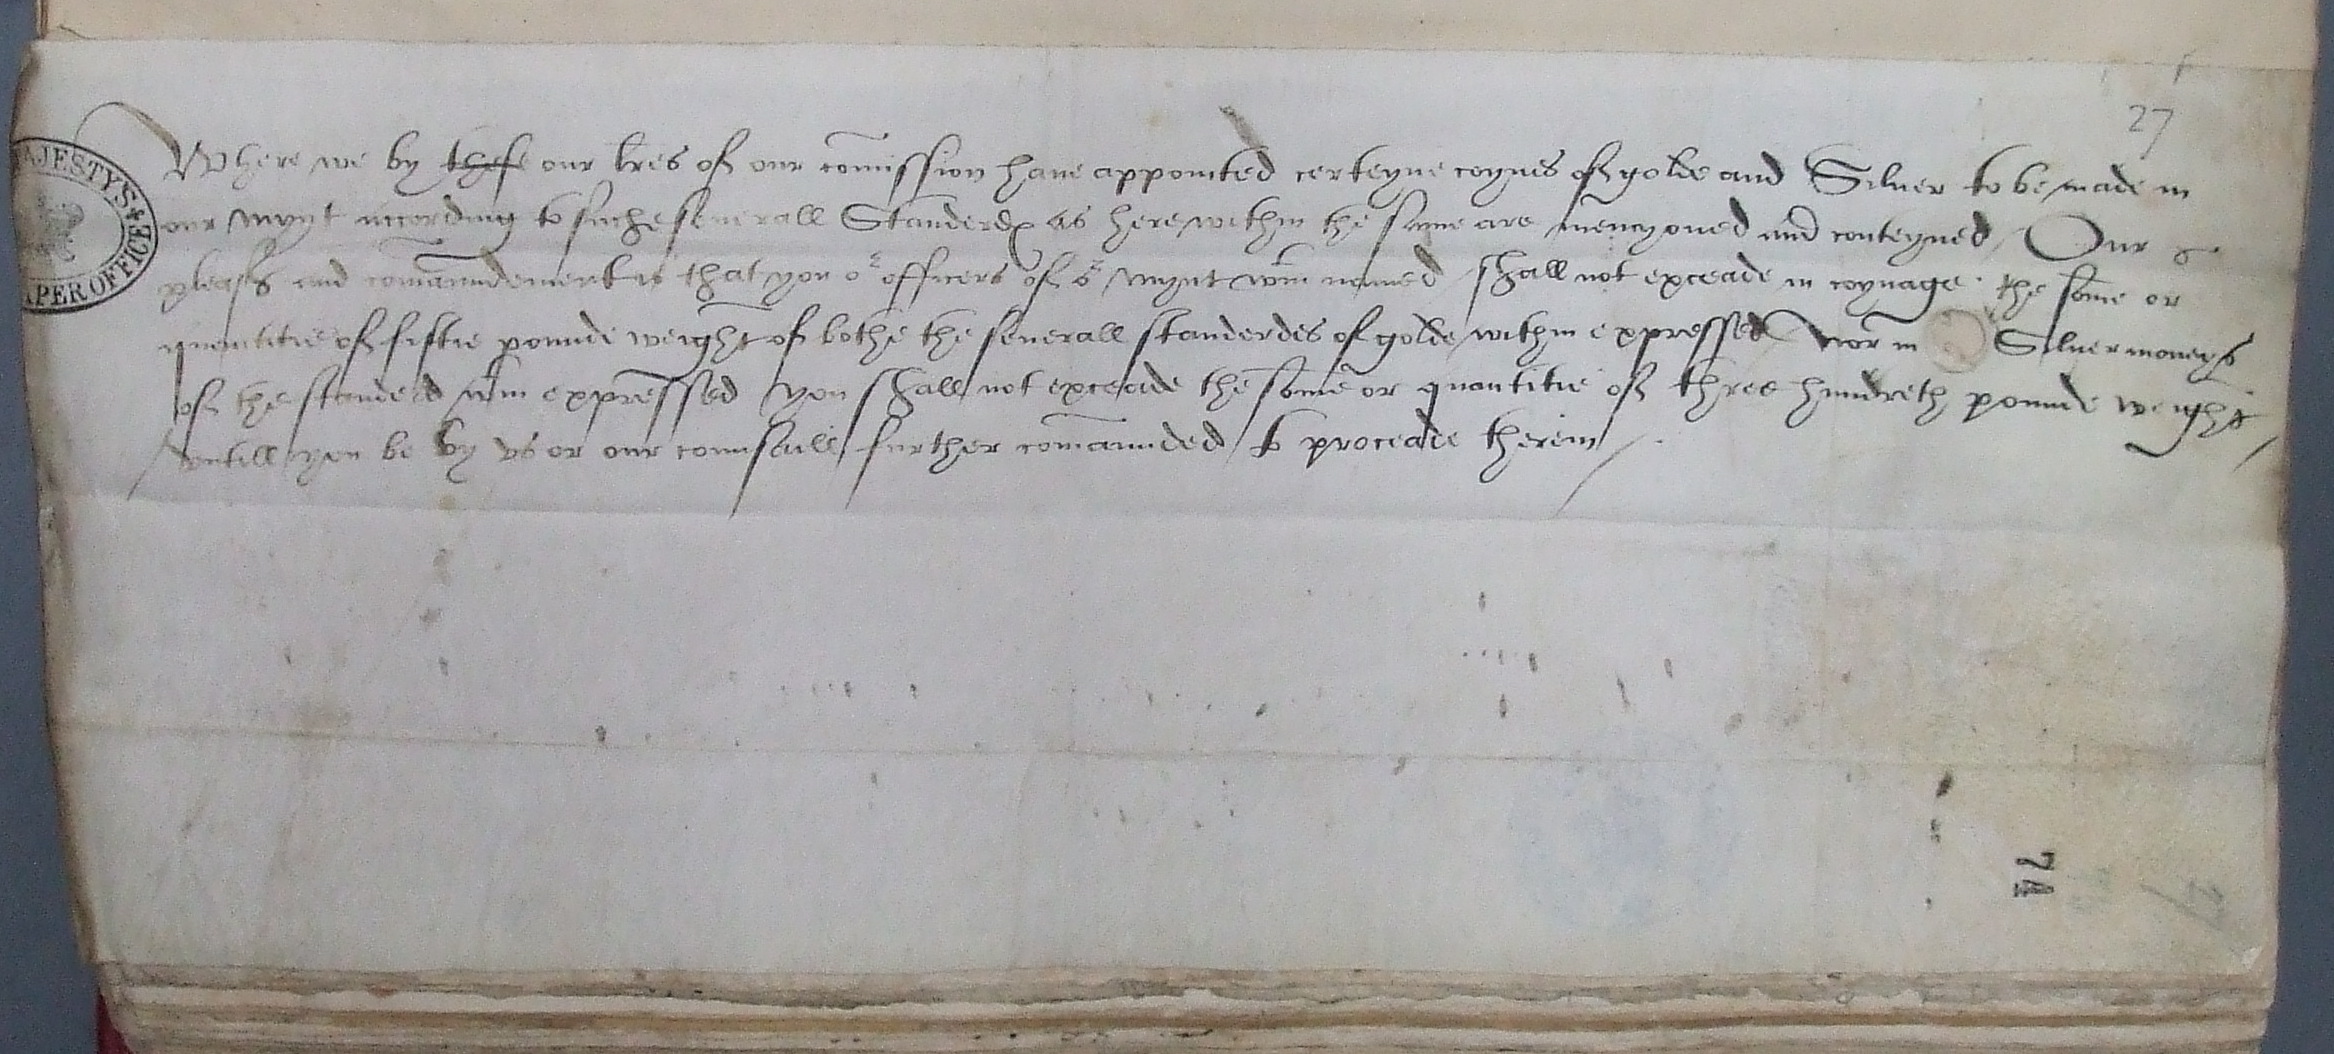 27
Where we by these our l̃res of our com̃ission haue appointed certeyne coynes of golde and Siluer to be made in
our mynt according to suche seuerall Standerdꝭ as here within the same are mencyoned and conteyned / Our
pleasr and com̃aundement is that you or officers of or mynt wtin named shall not exceade in coynage the some or
quantitie of fiftie pounde weight of bothe the seuerall standerdes of golde within expressed Nor in Siluer moneys
of the standerd wtin expressed you shall not exceade the some or quantitie of three hundreth pounde weight /
vntill you be by vs or our counsaill further com̃aunded to proceade therein /.
AJESTY'S
APER OFFICE
74